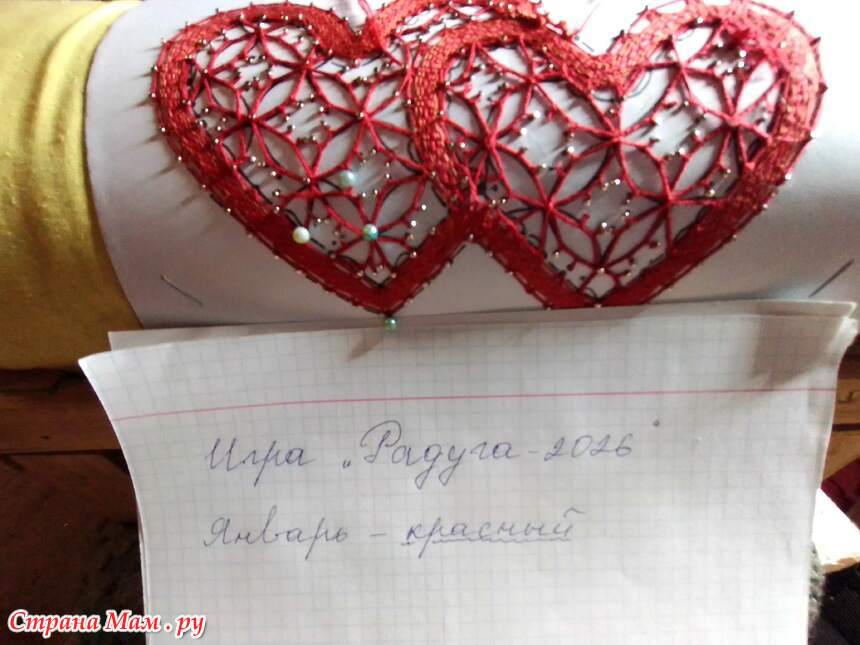 Игра „Радуга-2026"
Январь - красный
Страна Мам.ру